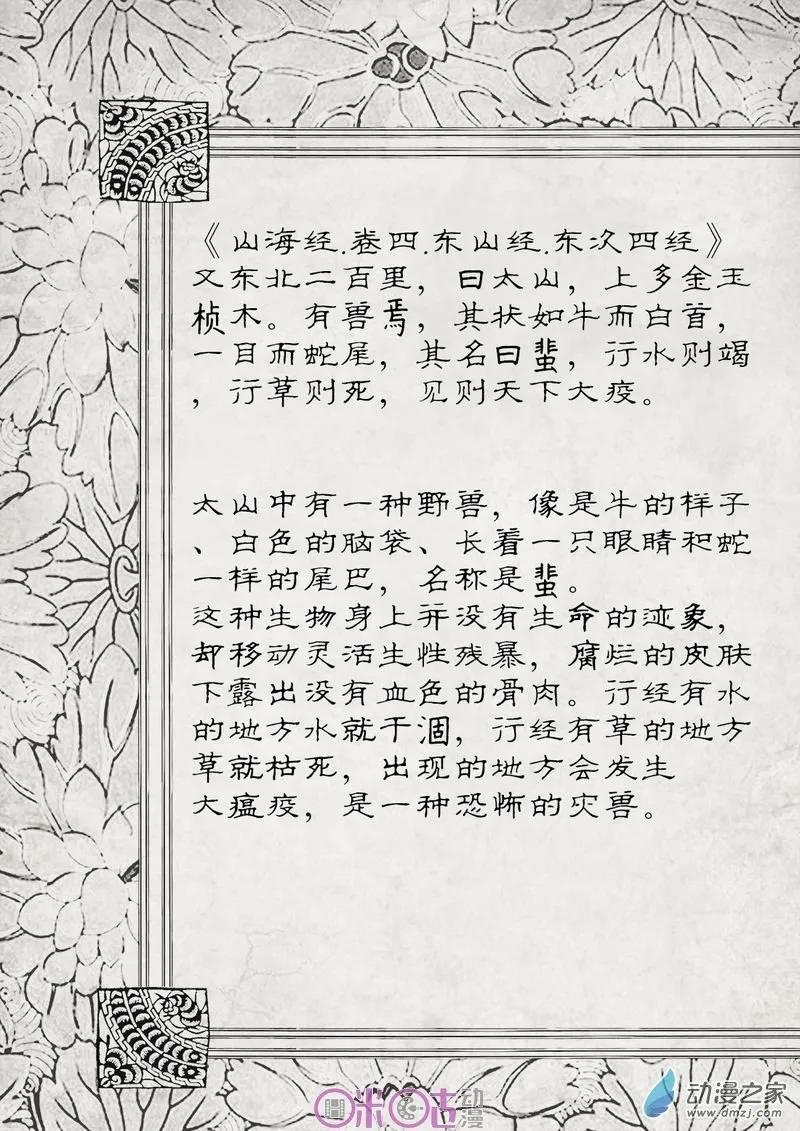 《山海经.卷四.东山经.东次四经》
又东北二百里，曰太山，上多金玉
桢木。有兽焉，其状如牛而白首，
一目而蛇尾，其名曰蜚，行水则竭
，行草则死，见则天下大疫。
太山中有一种野兽，像是牛的样子
、白色的脑袋、长着一只眼睛和蛇
一样的尾巴，名称是蜚。
这种生物身上并没有生命的迹象，
却移动灵活生性残暴，腐烂的皮肤
下露出没有血色的骨肉。行经有水
的地方水就干涸，行经有草的地方
草就枯死，出现的地方会发生
大瘟疫，是一种恐怖的灾兽。
咪咕动漫
动漫之家
www.dmzj.com